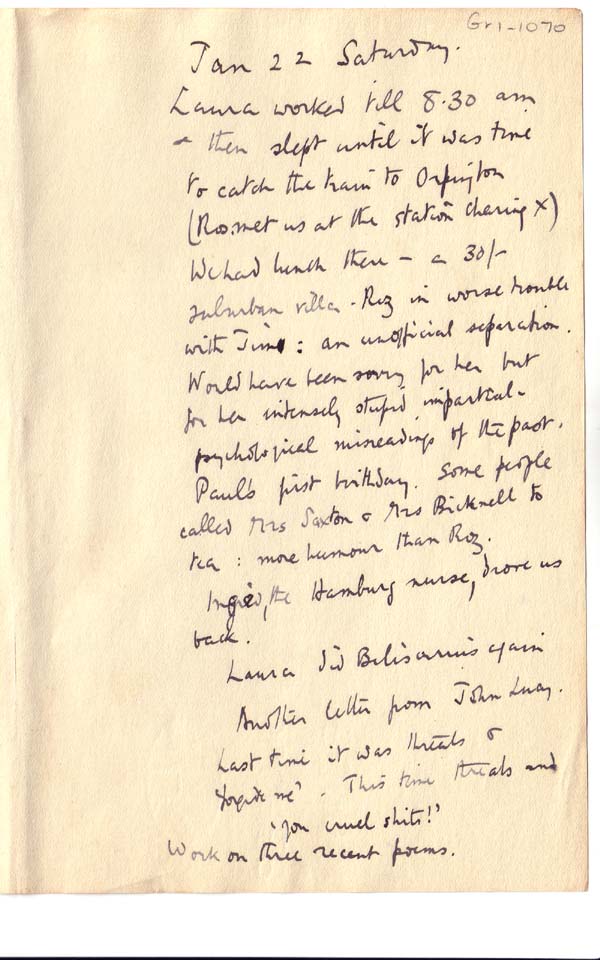 Gr1-1070
Jan 22 Saturday.
Laura worked till 8.30 am
- then slept until it was time
to catch the train to Orpington
(Ros. met us at the station Charing X)
We had lunch there – a 30/-
suburban villa. Roz in worse trouble
with Jim: an unofficial separation.
Would have been sorry for her but
for her intensely stupid 'impartial-
psychological' misreadings of the past.
Paul's first birthday. Some people
called Mrs Saxton & Mrs Bicknell to
tea: more humour than Roz.
Ingrid, the Hamburg nurse, drove us
back.
Laura did Belisarius again
Another letter from John Lucas.
Last time it was threats &
'forgive me'. This time threats and
'you cruel shits!'
Work on three recent poems.